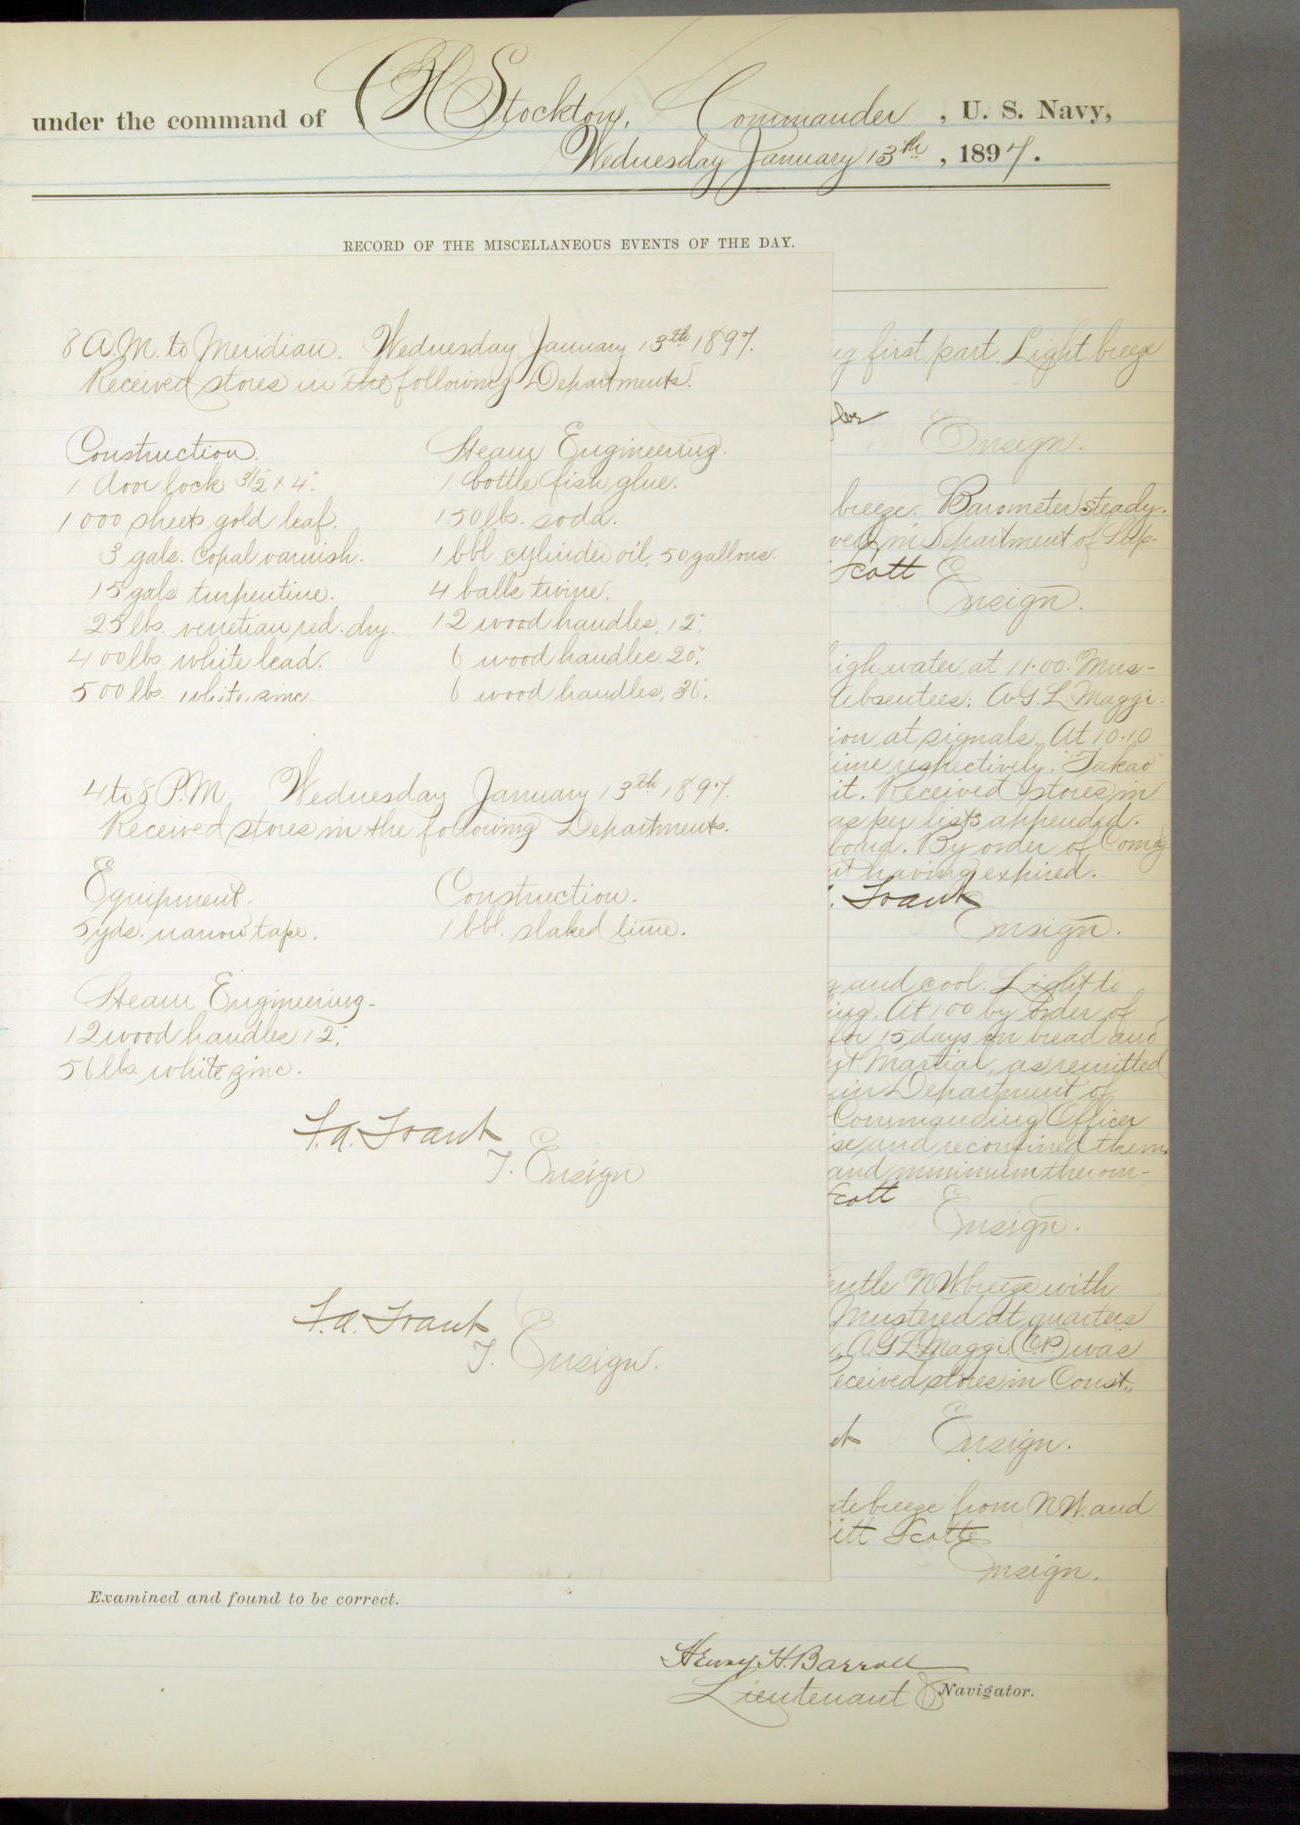 under the command of C H Stockton, Commander, U. S. Navy,
Wednesday January 13th, 1897.
RECORD OF THE MISCELLANEOUS EVENTS OF THE DAY.
8 A.M. to Meridian. Wednesday January 13th 1897.
Received stores in the following Departments.
Construction. Steam Engineering.
1 door lock 3½" x 4". 1 bottle fish glue.
1000 sheets gold leaf. 150 lbs. soda.
3 gals. Copal varnish. 1 bbl cylinder oil, 50 gallons.
15 gals turpentine. 4 balls twine.
25 lbs. venetian red. dry. 12 wood handles, 12".
400 lbs. white lead. 6 wood handles, 20".
500 lbs. white zinc 6 wood handles, 36".
4 to 8 P.M. Wednesday January 13th 1897.
Received stores in the following Departments.
Equipment. Construction.
5 yds. narrow tape. 1 bbl. slaked lime.
Steam Engineering.
12 wood handles 12".
56 lbs. white zinc.
F.A. Traut
J. Ensign
F.A. Traut
J. Ensign.
first part. Light breeze
Ensign.
breeze. Barometer steady.
in Department of Sup-
Scott
Ensign.
high water at 11.00. Mus-
Absentees: A.G.L. Maggi.
at signals. At 10.10
respectively. "Takao"
it. Received stores in
as per lists appended.
board. By order of Comdg
having expired.
Traut
Ensign.
and cool. Light to
At 1 00 by order of
for 15 days on bread and
Martial, as remitted
in Department of
Commanding Officer
and reconfined them
and minimum thermom-
Scott
Ensign.
gentle NW breeze with
Mustered at quarters
A.G.L. Maggi (O.P.) was
received stores in Const.,
Ensign.
breeze from NW. and
itt Scott
Ensign.
Examined and found to be correct.
Henry H. Barroll
Lieutenant & Navigator.